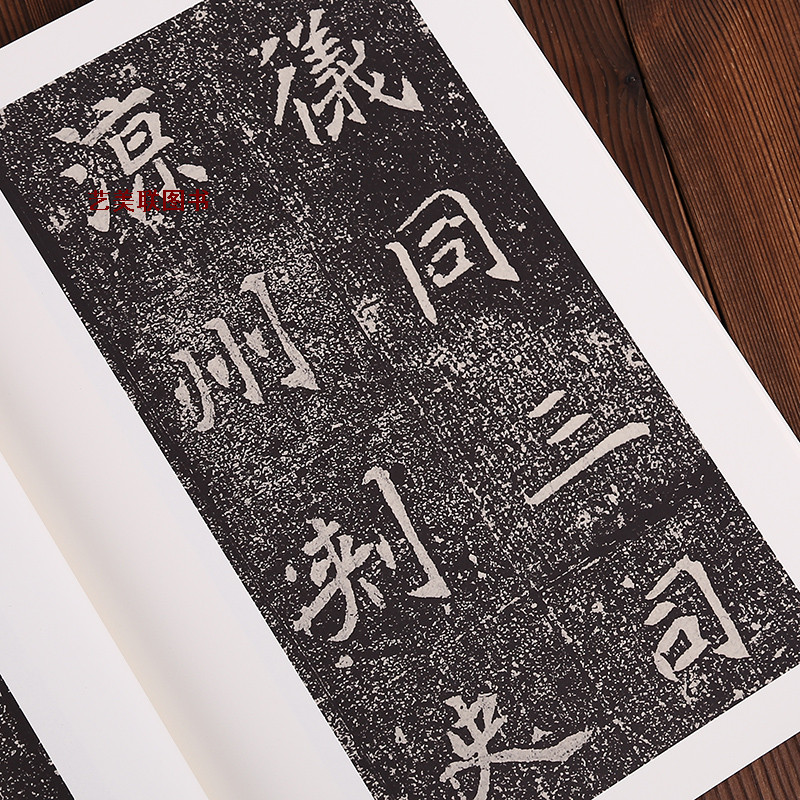 儀同三司
涼州刺史
艺美联图书